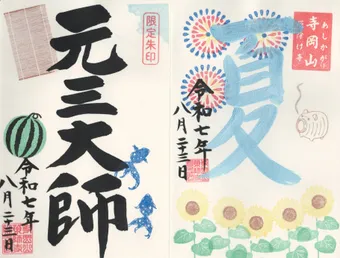 限定朱印
元三大師
令和七年
八月二十三日
あしかが
寺岡山
夏
令和七年
八月二十三日